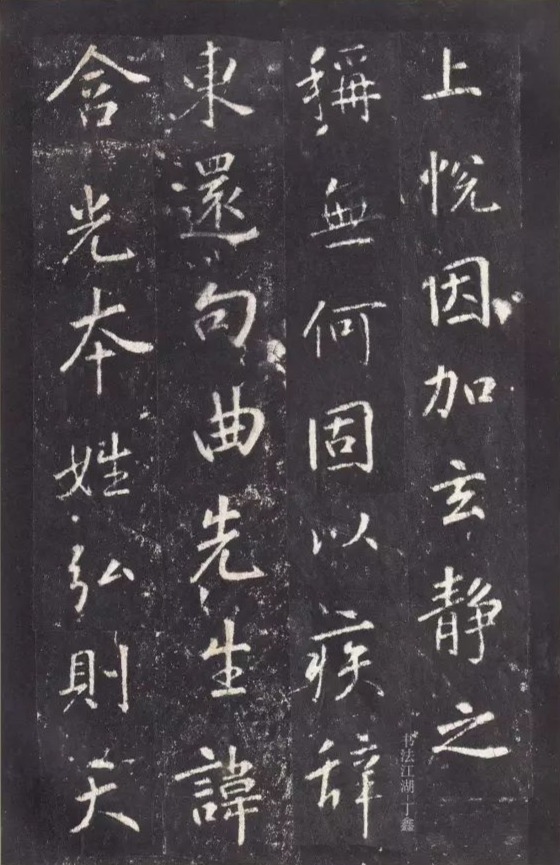 上悅因加玄静之
稱無何固以疾辞
東還句曲先生諱
含光本姓弘則天
书法江湖丁鑫